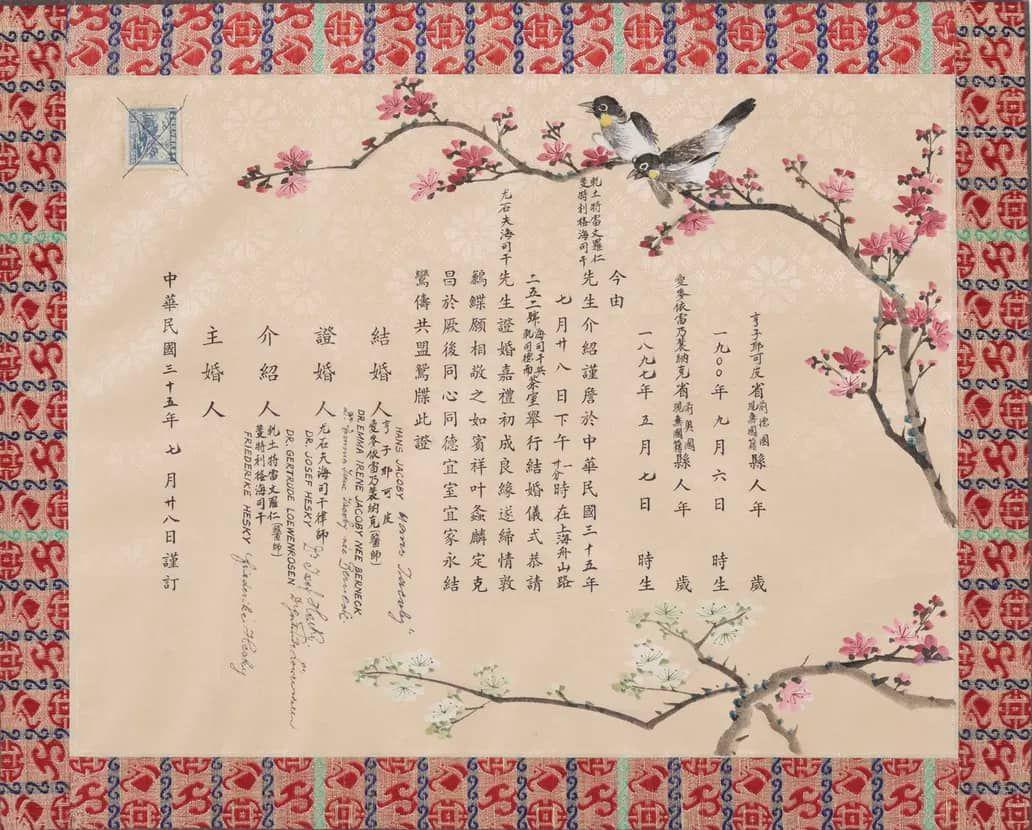 亨子耶可皮省前德國現無國籍縣人年　歲
一九〇〇年九月六日　時生
愛麥依雷乃裴納克省前奧國現無國籍縣人年　歲
一八九七年五月七日　時生
今由
乾土特雷文羅仁
蔓特利格海司干
先生介紹謹詹於中華民國三十五年
七月廿八日下午一時廿分在上海舟山路
二五二號海司干共茶室舉行結婚儀式恭請
尤石夫海司干
先生證婚嘉禮初成良緣遂締情敦
鶼鰈願相敬之如賓祥叶螽麟定克
昌於厥後同心同德宜室宜家永結
鸞儔共盟鴛牒此證
結婚人
HANS JACOBY
亨子耶可皮
愛麥依雷乃裴納克(醫師)
DR. EMMA IRENE JACOBY NEE BERNECK
Dr. Emma Irene Jacoby nee Berneck
證婚人
尤石夫海司干律師
DR. JOSEF HESKY
Dr Josef Hesky
介紹人
DR. GERTRUDE LOEWENROSEN
乾土特雷文羅仁(醫師)
蔓特利格海司干
FRIEDERIKE HESKY
Friederike Hesky
主婚人
中華民國三十五年七月廿八日謹訂